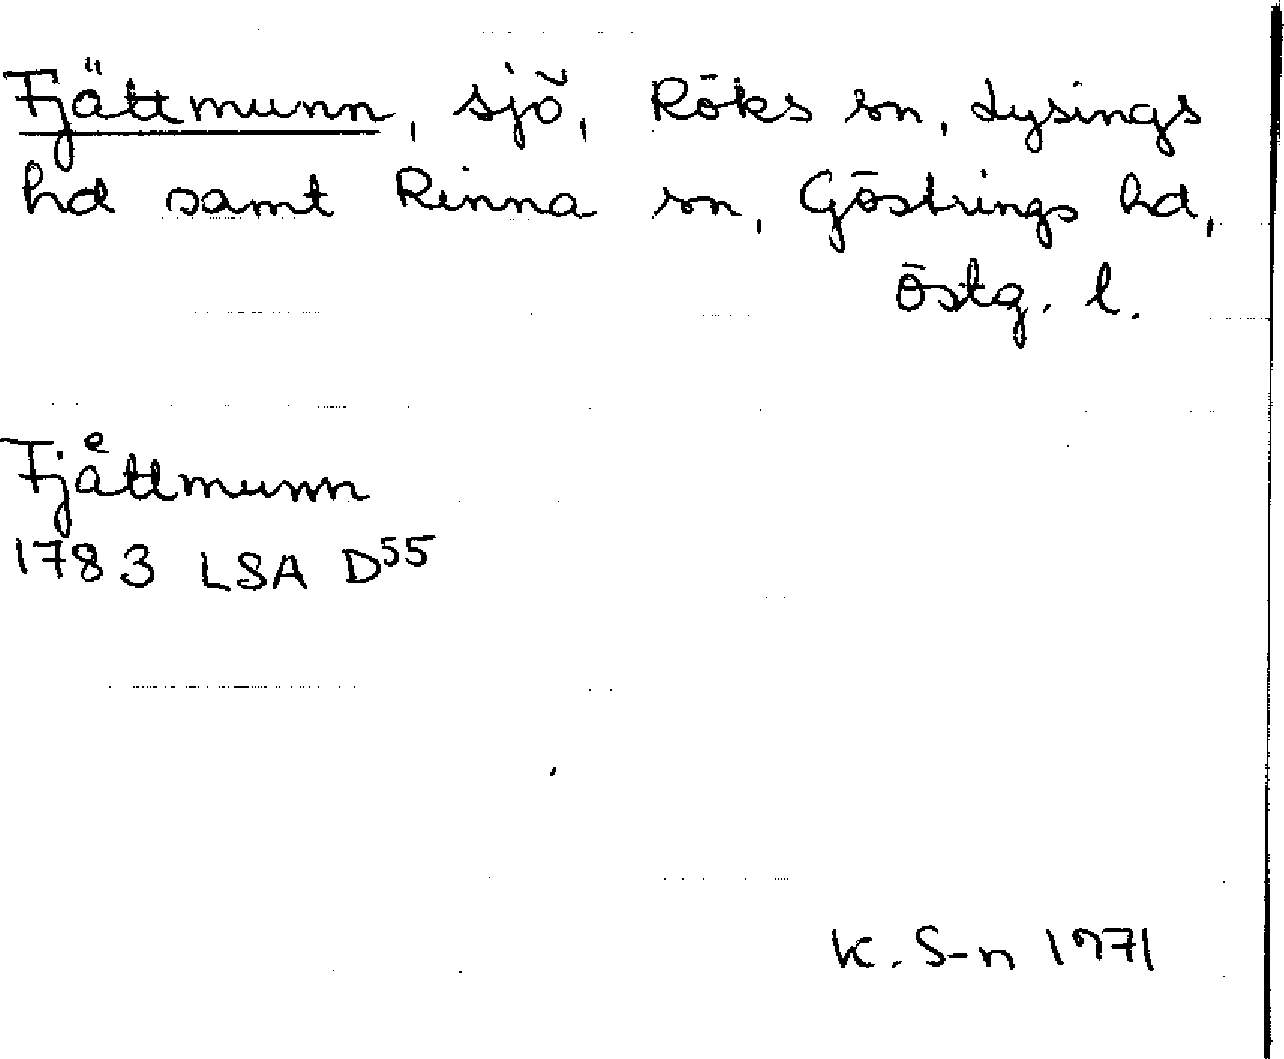 Fjättmunn, sjö, Röks sn, Lysings
hd samt Rinna sn, Göstrings hd,
Östg. l.
Fjaͤttmunn
1783 LSA D⁵⁵
K. S-n 1971